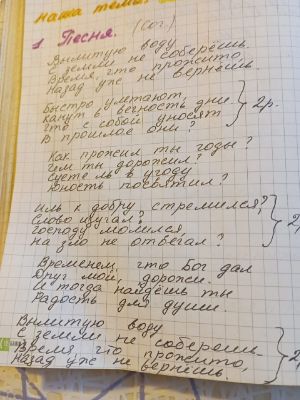 наша тема:
1. Песня. (Сог.)
Вылитую воду
с земли не соберёшь.
Время, что прожито,
Назад уже не вернёшь.
Быстро улетают,
канут в вечность дни.
Что с собой уносят 2р.
В прошлое они?
Как прожил ты годы?
Чем ты дорожил?
Суете ль в угоду
Юность посвятил?
Иль к добру стремился?
Слово изучал?
Господу молился,
на зло не отвечал?
Временем, что Бог дал
Друг мой, дорожи.
И тогда найдёшь ты
Радость для души.
Вылитую воду
с земли не соберёшь.
Время что прожито,
назад уже не вернёшь.